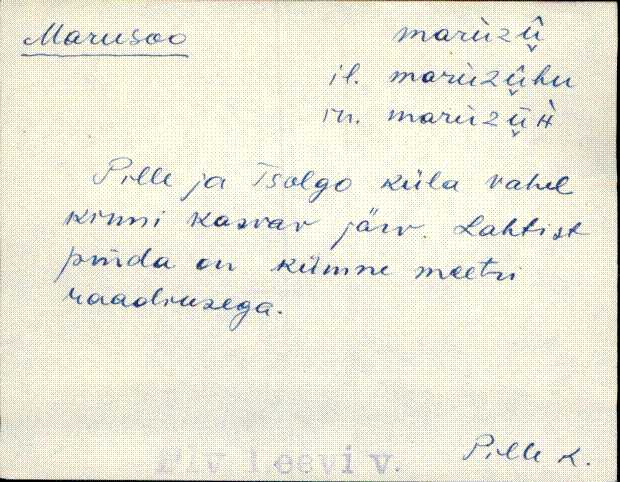 Marusoo
marùzû̬
il. marùzû̬hu
in. marùzū̬H̀
Pille ja Tsolgo küla vahel
kinni kasvav järv. Lahtist
pinda on kümne meetri
raadiusega.
Plv Leevi v.
Pille k.